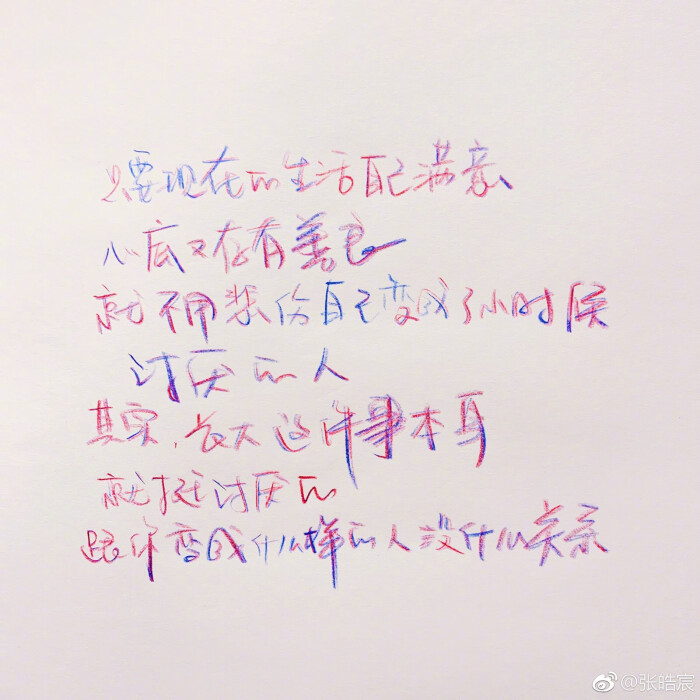 只要现在的生活自己满意
心底又存有善良
就不用悲伤自己变成了小时候
讨厌的人
其实，长大这件事本身
就挺讨厌的
跟你变成什么样的人没什么关系
@张皓宸